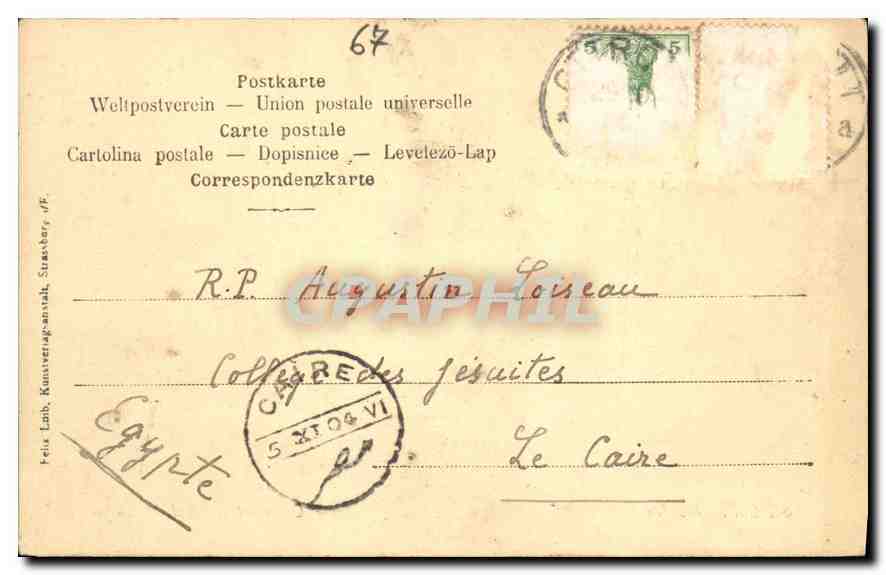 67
Postkarte
Weltpostverein — Union postale universelle
Carte postale
Cartolina postale — Dopisnice — Levelező-Lap
Correspondenzkarte
5 5
a
R.P. Augustin Loiseau
CPARPHIL
Collège des Jésuites
CAIRE
5 XI 04 VI
Le Caire
Égypte
Felix Luib, Kunstverlagsanstalt, Strassburg i/E.